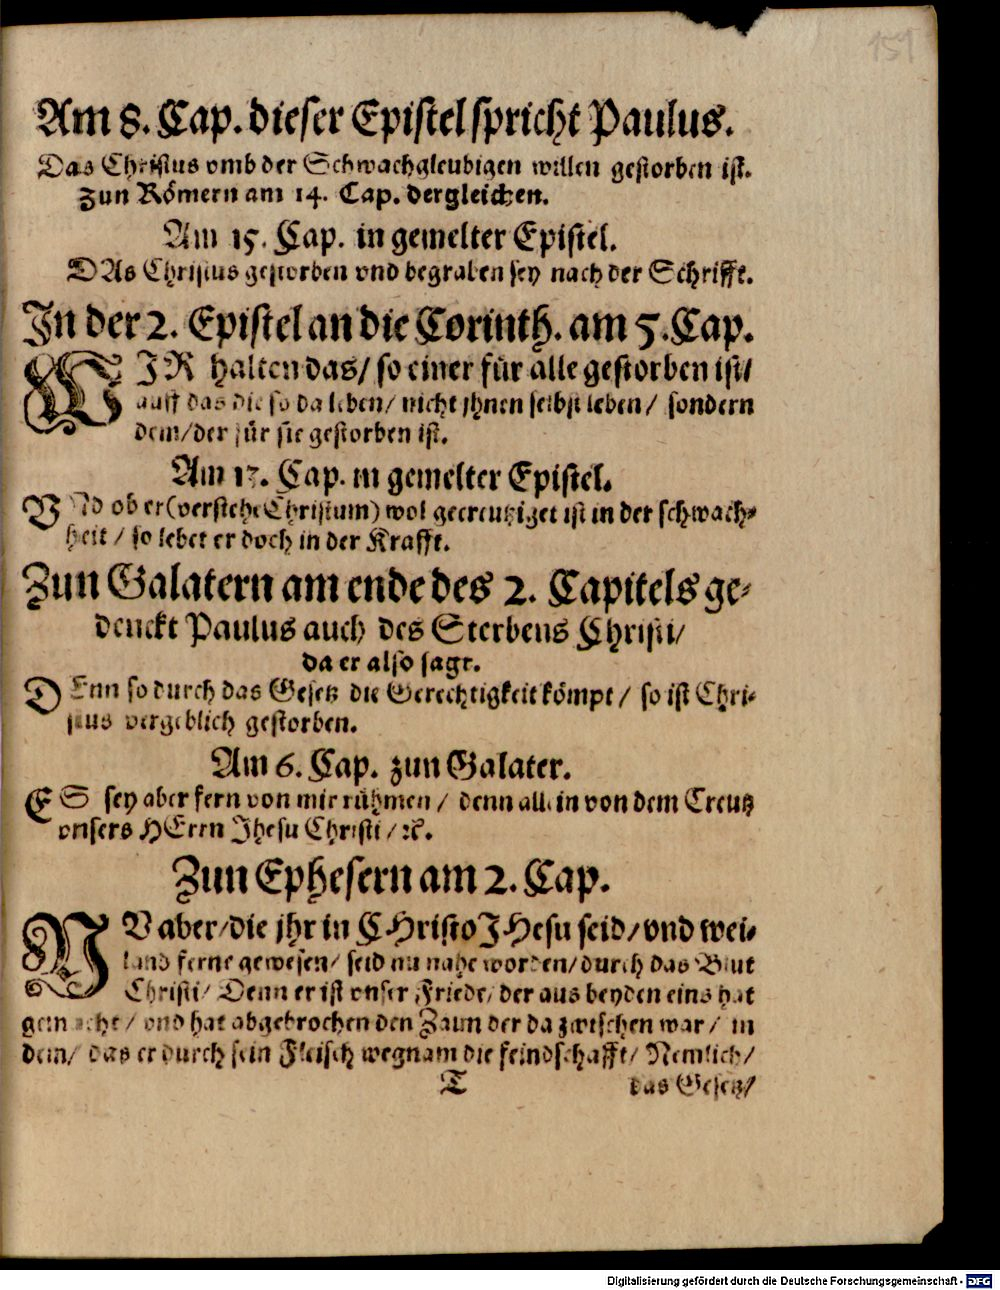 151
Am 8. Cap. dieser Epistel spricht Paulus.
Das Christus vmb der Schwachgleubigen willen gestorben ist.
Zun Römern am 14. Cap. dergleichen.
Am 15. Cap. in gemelter Epistel.
DAs Christus gestorben vnd begraben sey nach der Schrifft.
In der 2. Epistel an die Corinth. am 5. Cap.
WIR halten das/ so einer für alle gestorben ist/
auff das die so da leben/ nicht jhnen selbst leben/ sondern
dem/ der für sie gestorben ist.
Am 13. Cap. in gemelter Epistel.
VNd ob er (verstehe Christum) wol gecreutziget ist in der schwach-
heit / so lebet er doch in der Krafft.
Zun Galatern am ende des 2. Capitels ge-
denckt Paulus auch des Sterbens Christi/
da er also sagt.
DEnn so durch das Gesetz die Gerechtigkeit kömpt / so ist Chri-
stus vergeblich gestorben.
Am 6. Cap. zun Galater.
ES sey aber fern von mir rühmen / denn allein von dem Creutz
vnsers HErrn Jhesu Christi / ꝛc.
Zun Ephesern am 2. Cap.
NV aber/ die jhr in CHristo JHesu seid/ vnd wei-
land ferne gewesen/ seid nu nahe worden/ durch das Blut
Christi/ Denn er ist vnser Friede/ der aus beyden eins hat
gemacht / vnd hat abgebrochen den Zaun der da zwischen war / in
dem/ das er durch sein Fleisch wegnam die feindschafft/ Nemlich/
T das Gesetz/
Digitalisierung gefördert durch die Deutsche Forschungsgemeinschaft - DFG